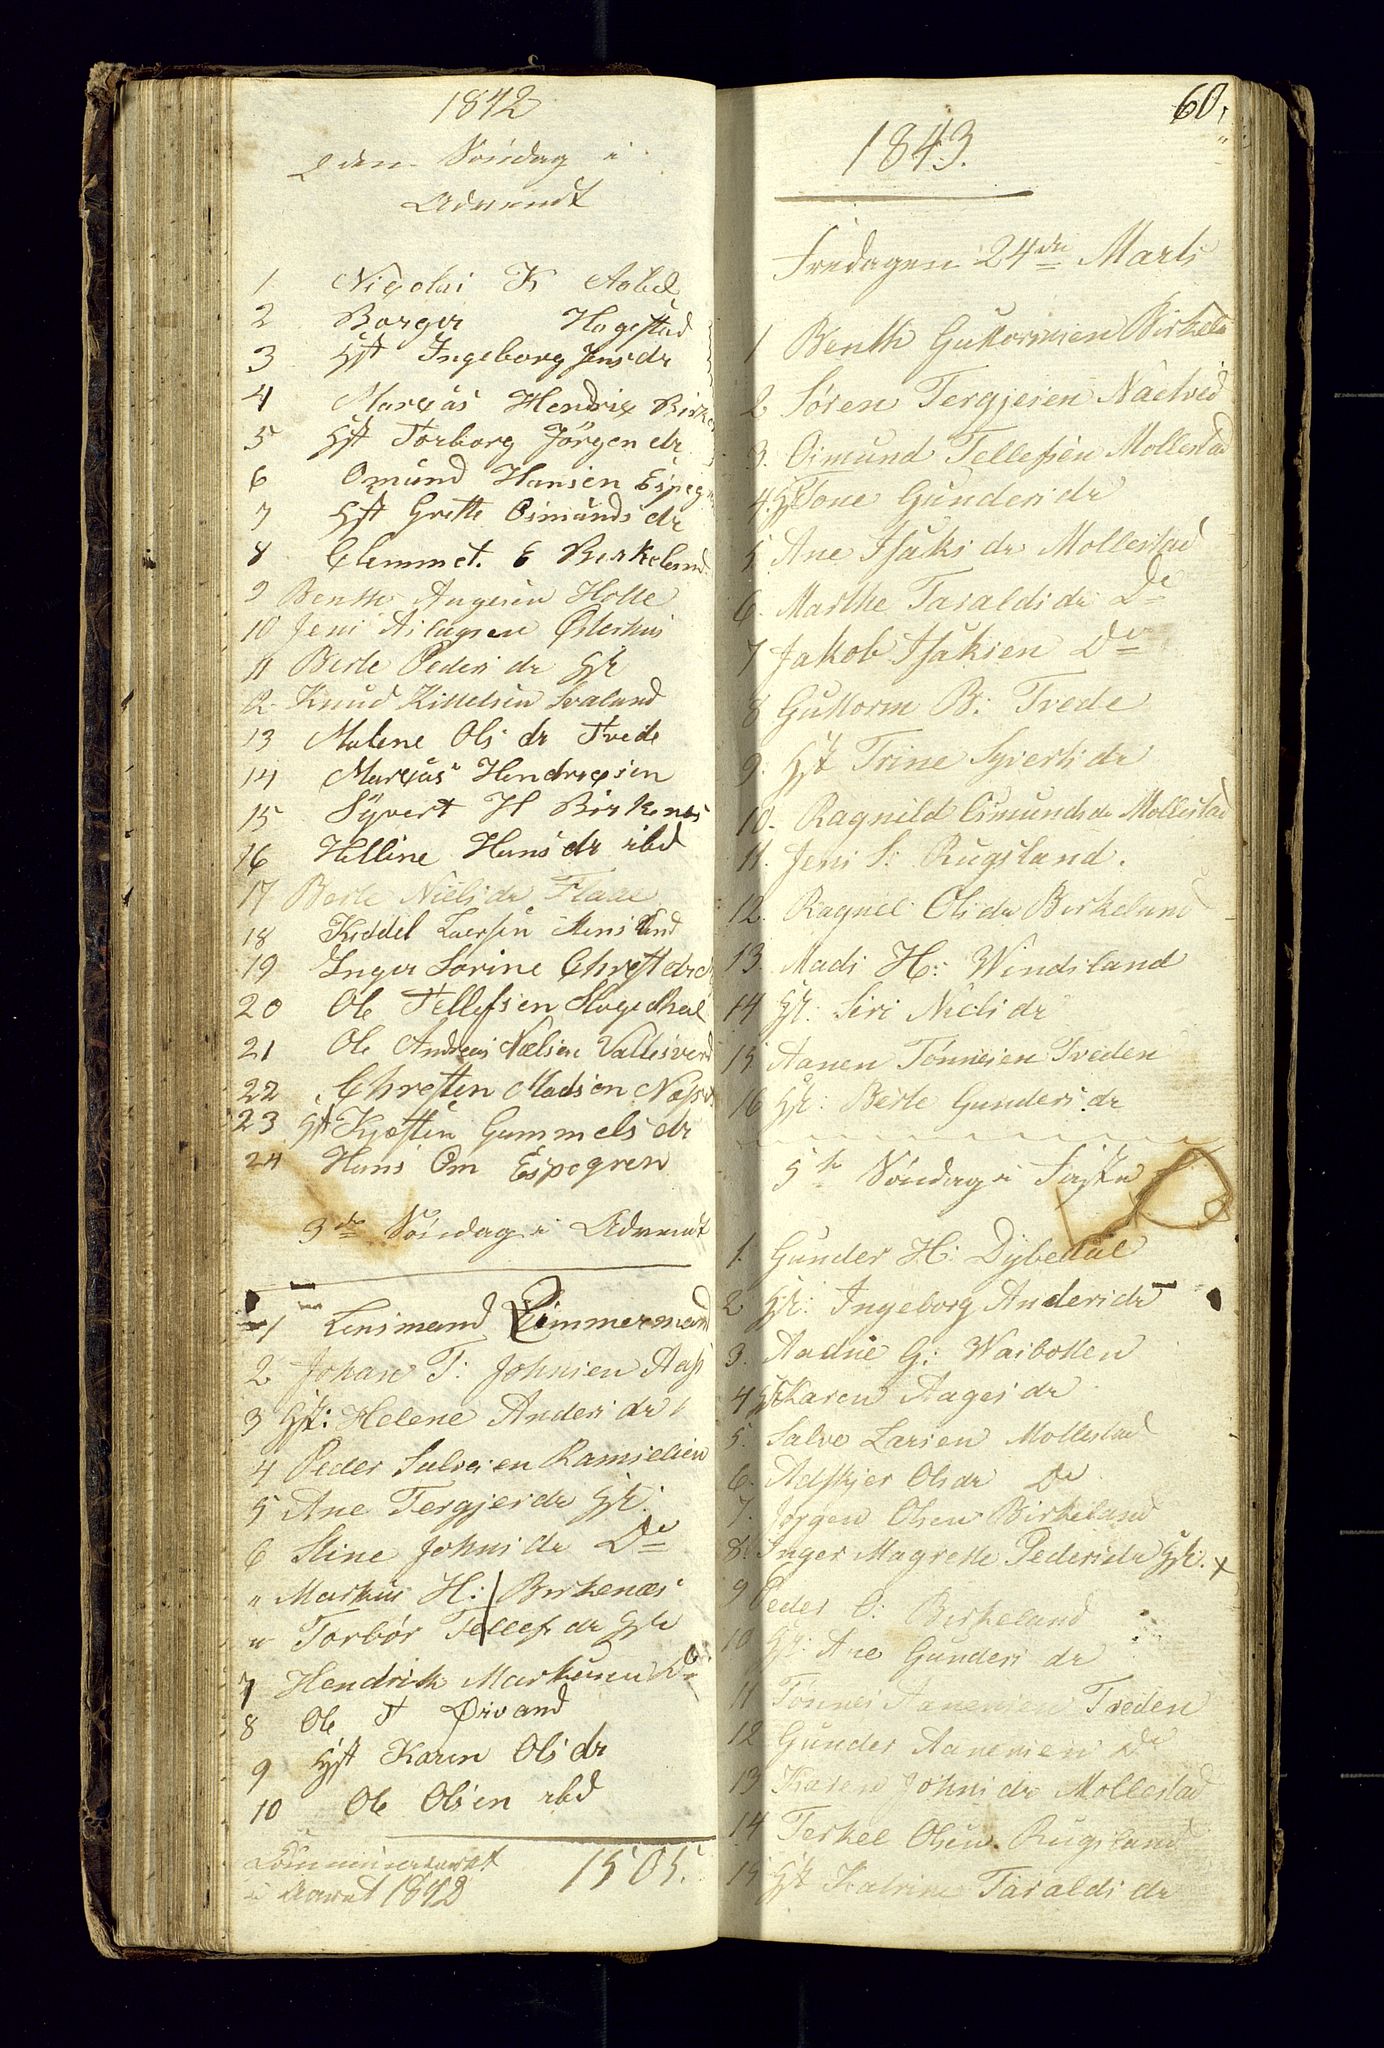 1842
2den Söndag i
Advendt
1 Nicolai K Aabel
2 Borger Hagestad
3 Hst Ingeborg Jensdr
4 Marcus Hendric Birke
5 Hst Torborg Jörgen dr
6 Omund Hansen Espegr
7 Hst Grette Osmunds dr
8 Clemmet. E Birkeland
9 Benthe Aagesen Holte
10 Jens Aslagsen Østerhus
11 Berte Peders dr Hst
12. Knud Kittelsen Svaland
13 Malene Ols dr Tvede
14 Marcus Hendricsen
15 Syvert H Birkenes
16 Helline Hans dr ibd
17 Berte Niels dr Flaae
18 Kiddel Laersen
19 Inger Sorine Chrest dr
20 Ole Tellefsen Stogedhal
21 Ole Andreas Nælsen Vallesverd
22 Chresten Madsen Næs
23 Hst Kjesten Gummels dr
24 Hans Om Espegren
3de Søndag i Advendt
1 Lensmand Zimmermand
2 Johan T: Johnsen Aas
3 Hst: Helene Anders dr
4 Peder Salvesen Ramselien
5 Ane Tergjesdr Hst:
6 Stine Johns dr Do
" Markus H: Birkenæs
" Torbør Tellefs dr Hst
7 Hendrik Markusen Do
8 Ole T Øivand
9 Hst Karen Ols dr
10 Ole Olsen ibd
Communiceret
i Aaret 1842 1505.
60,
1843.
Fredagen 24de Marts
1 Benth Guttormsen Birkela
2 Søren Tergjesen Nætved
3. Osmund Tellefsen Mollestad
4. Hst Tone Gunders dr
5 Ane Isaks dr Mollestad
6. Marthe Taralds dr Do
7 Jakob Isaksen Do
8 Guttorm B: Tvede
9. Hst Trine Syverts dr
10. Ragnild Osmunds dr Mollestad
11. Jens S: Rugsland.
12. Ragnel Olsdr Birkeland
13. Mads H: Windsland
14 Hst: Siri Niels dr
15 Aanen Tønnesen Tveden
16 Hst: Berte Gunders dr
5te Søndag i Faste
1. Gunder H: Dybedal
2 Hst: Ingeborg Andersdr
3. Aadne G: Waibotten
4 Hst Karen Aages dr
5. Salve Larsen Mollestad
6. Adskjer Olsdr Do
7. Jørgen Olsen Birkeland
8. Inger Magrette Pedersdr Hst. x
9 Peder O: Birkeland
10 Hst: Ane Gunders dr
11 Tønnes Aanensen Tveden
12 Gunder Aanensen Do
13 Karen Johns dr Mollestad
14 Terkel Olsen Rugsland
15 Hst Katrine Taralds dr